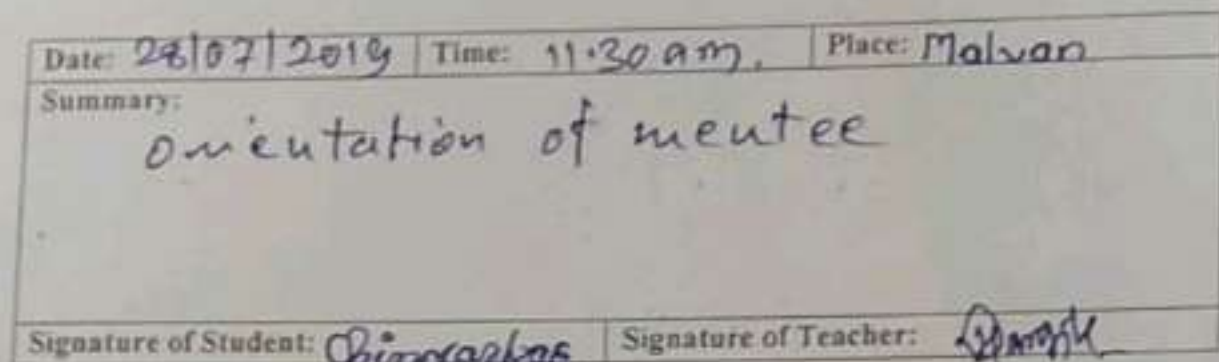 Date: 28/07/2019 Time: 11.30 am. Place: Malvan
Summary:
orientation of mentee
Signature of Student: Signature of Teacher: